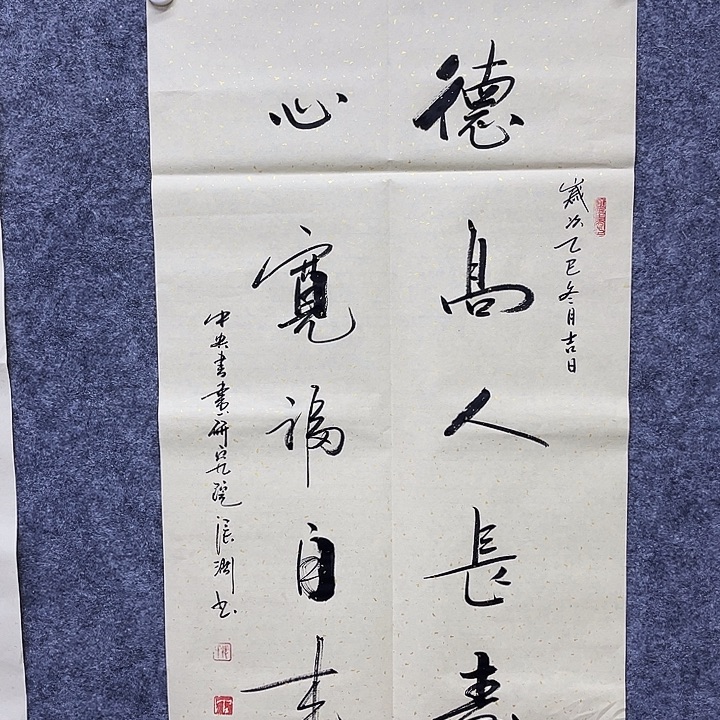 歲次乙巳冬月吉日
德高人長壽
心寬福自來
中央书畫研究院 张渊书